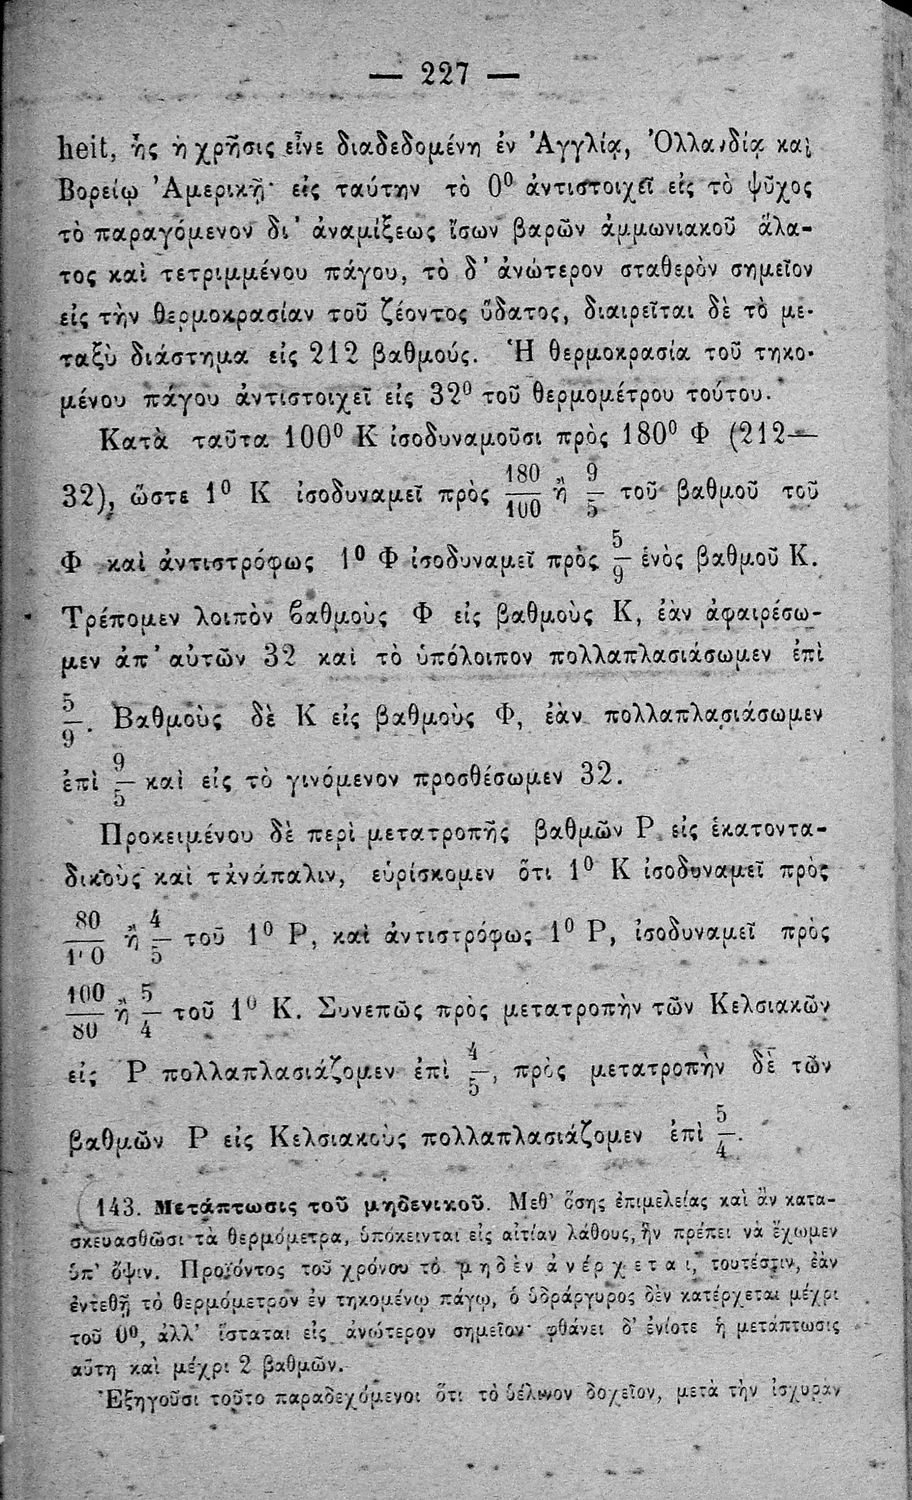 — 227 —
heit, ἧς ἡ χρῆσις εἶνε διαδεδομένη ἐν Ἀγγλίᾳ, Ὀλλανδίᾳ καὶ
Βορείῳ Ἀμερικῇ· εἰς ταύτην τὸ 0⁰ ἀντιστοιχεῖ εἰς τὸ ψῦχος
τὸ παραγόμενον δι' ἀναμίξεως ἴσων βαρῶν ἀμμωνιακοῦ ἅλα-
τος καὶ τετριμμένου πάγου, τὸ δ' ἀνώτερον σταθερὸν σημεῖον
εἰς τὴν θερμοκρασίαν τοῦ ζέοντος ὕδατος, διαιρεῖται δὲ τὸ με-
ταξὺ διάστημα εἰς 212 βαθμούς. Ἡ θερμοκρασία τοῦ τηκο-
μένου πάγου ἀντιστοιχεῖ εἰς 32⁰ τοῦ θερμομέτρου τούτου.
Κατὰ ταῦτα 100⁰ Κ ἰσοδυναμοῦσι πρὸς 180⁰ Φ (212—
32), ὥστε 1⁰ Κ ἰσοδυναμεῖ πρὸς 180/100 ἢ 9/5 τοῦ βαθμοῦ τοῦ
Φ καὶ ἀντιστρόφως 1⁰ Φ ἰσοδυναμεῖ πρὸς 5/9 ἑνὸς βαθμοῦ Κ.
Τρέπομεν λοιπὸν βαθμοὺς Φ εἰς βαθμοὺς Κ, ἐὰν ἀφαιρέσω-
μεν ἀπ' αὐτῶν 32 καὶ τὸ ὑπόλοιπον πολλαπλασιάσωμεν ἐπὶ
5/9. Βαθμοὺς δὲ Κ εἰς βαθμοὺς Φ, ἐὰν πολλαπλασιάσωμεν
ἐπὶ 9/5 καὶ εἰς τὸ γινόμενον προσθέσωμεν 32.
Προκειμένου δὲ περὶ μετατροπῆς βαθμῶν Ρ εἰς ἑκατοντα-
δικοὺς καὶ τἀνάπαλιν, εὑρίσκομεν ὅτι 1⁰ Κ ἰσοδυναμεῖ πρὸς
80/100 ἢ 4/5 τοῦ 1⁰ Ρ, καὶ ἀντιστρόφως 1⁰ Ρ, ἰσοδυναμεῖ πρὸς
100/80 ἢ 5/4 τοῦ 1⁰ Κ. Συνεπῶς πρὸς μετατροπὴν τῶν Κελσιακῶν
εἰς Ρ πολλαπλασιάζομεν ἐπὶ 4/5, πρὸς μετατροπὴν δὲ τῶν
βαθμῶν Ρ εἰς Κελσιακοὺς πολλαπλασιάζομεν ἐπὶ 5/4.
143. Μετάπτωσις τοῦ μηδενικοῦ. Μεθ' ὅσης ἐπιμελείας καὶ ἂν κατα-
σκευασθῶσι τὰ θερμόμετρα, ὑπόκεινται εἰς αἰτίαν λάθους, ἣν πρέπει νὰ ἔχωμεν
ὑπ' ὄψιν. Προϊόντος τοῦ χρόνου τὸ μηδὲν ἀνέρχεται, τουτέστιν, ἐὰν
ἐντεθῇ τὸ θερμόμετρον ἐν τηκομένῳ πάγῳ, ὁ ὑδράργυρος δὲν κατέρχεται μέχρι
τοῦ 0⁰, ἀλλ' ἵσταται εἰς ἀνώτερον σημεῖον· φθάνει δ' ἐνίοτε ἡ μετάπτωσις
αὕτη καὶ μέχρι 2 βαθμῶν.
Ἐξηγοῦσι τοῦτο παραδεχόμενοι ὅτι τὸ ὑέλινον δοχεῖον, μετὰ τὴν ἰσχυρὰν